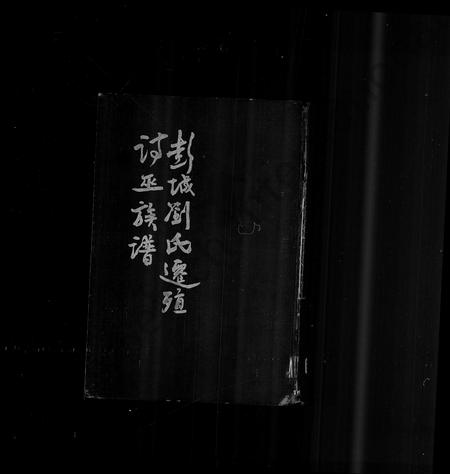 彭城劉氏遷殖
诗巫族谱